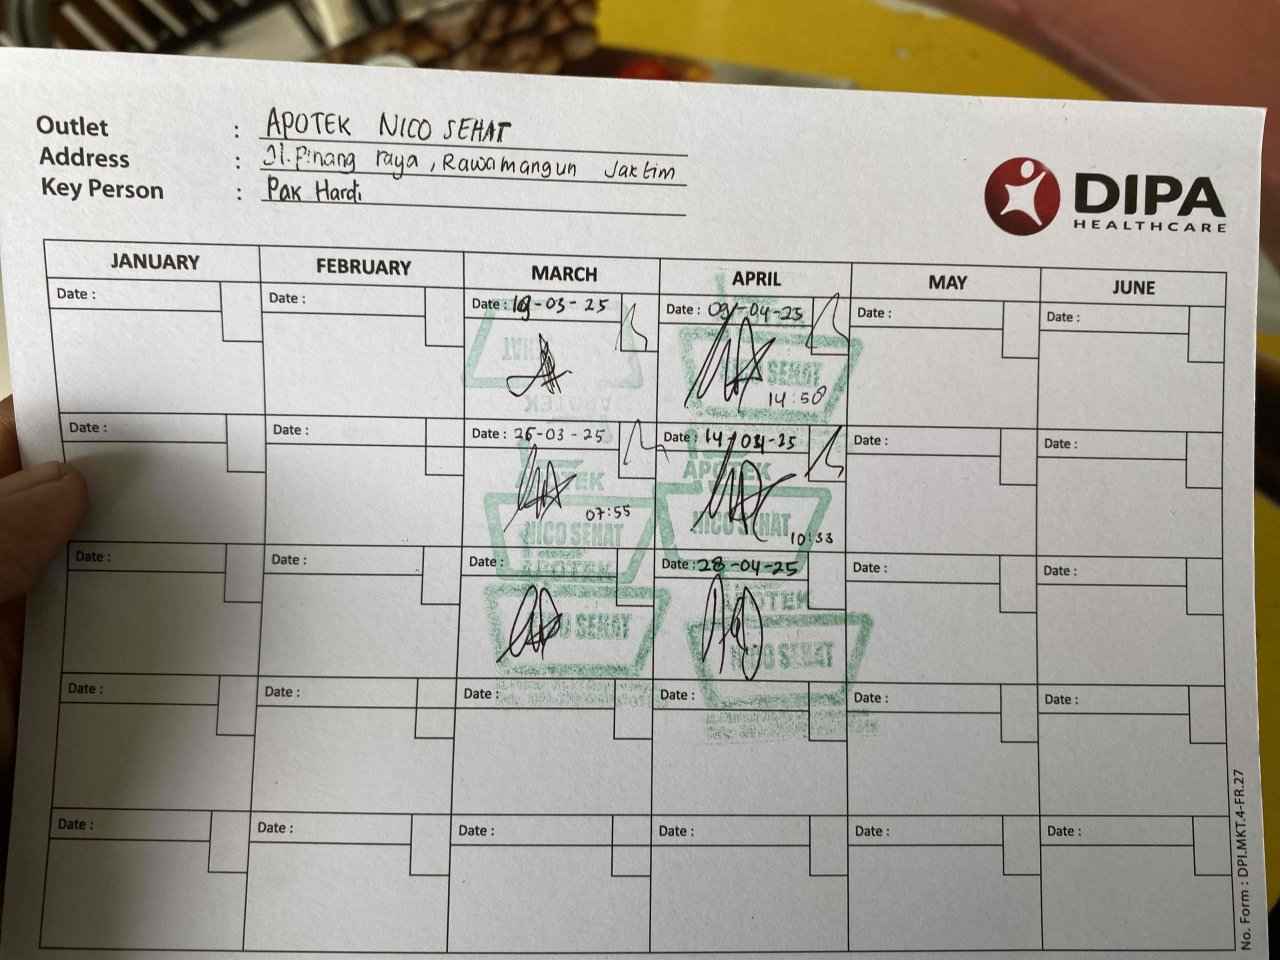 Outlet : APOTEK NICO SEHAT
Address : Jl. Pinang raya, Rawamangun Jaktim
Key Person : Pak Hardi
DIPA
HEALTHCARE
JANUARY FEBRUARY MARCH APRIL MAY JUNE
Date : Date : Date : 19-03-25 Date : 09-04-25 Date : Date :
NICO SEHAT SEHAT
APOTEK 14:50
Date : Date : Date : 26-03-25 Date : 14-04-25 Date : Date :
APOTEK APOTEK
07:55
NICO SEHAT NICO SEHAT
10:33
APOTEK
Date : Date : Date : Date : 28-04-25 Date : Date :
APOTEK
NICO SEHAT NICO SEHAT
Date : Date : Date : Date : Date : Date :
Date : Date : Date : Date : Date : Date :
No. Form : DPI.MKT.4-FR.27